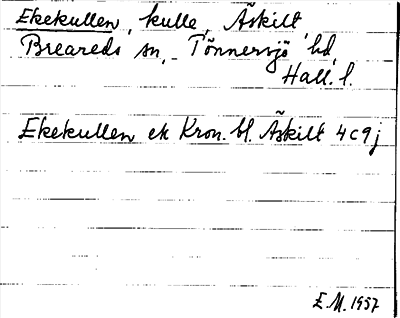 Ekekullen, kulle, Äskilt
Breareds sn, Tönnersjö hd,
Hall. l.
Ekekullen ek Kron. bl. Äskilt 4c9j
E.M. 1957